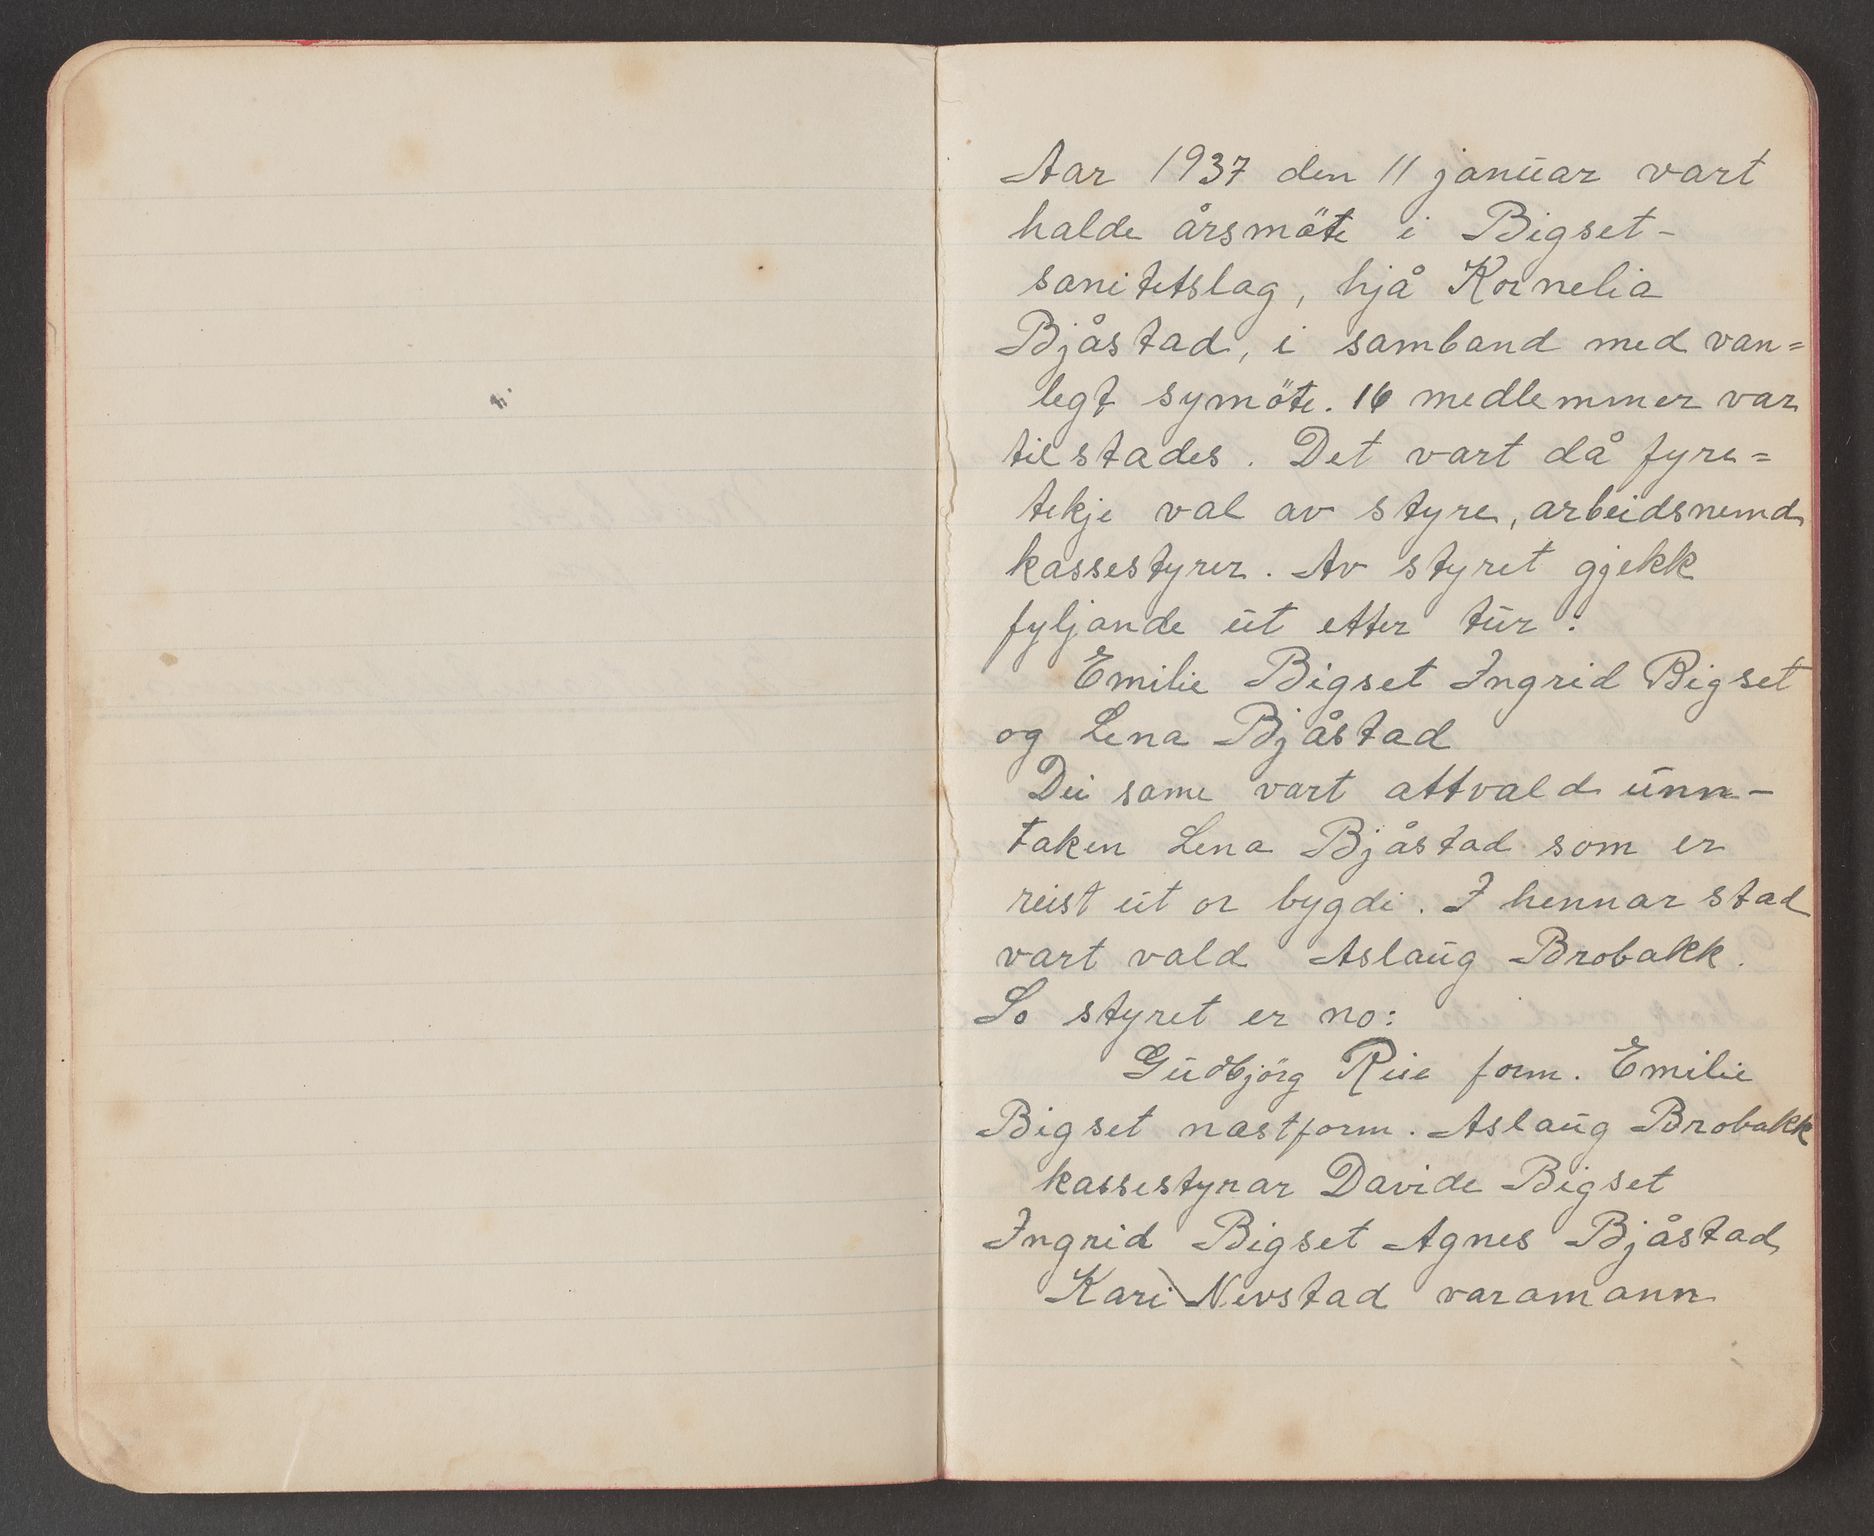 Aar 1937 den 11 januar vart
halde årsmöte i Bigset-
sanitetslag, hjå Kornelia
Bjåstad, i samband med van=
legt symöte. 16 medlemmer var
tilstades. Det vart då fyre=
tekje val av styre, arbeidsnemd
kassestyrer. Av styret gjekk
fyljande ut etter tur:
Emilie Bigset Ingrid Bigset
og Lena Bjåstad
Dei same vart attvald unn-
taken Lena Bjåstad som er
reist ut or bygdi. I hennar stad
vart vald Aslaug Brobakk.
So styret er no:
Gudbjörg Riie form. Emilie
Bigset næstform. Aslaug Brobakk
kassestyrar Davide Bigset
Ingrid Bigset Agnes Bjåstad
Kari Nevstad varamann